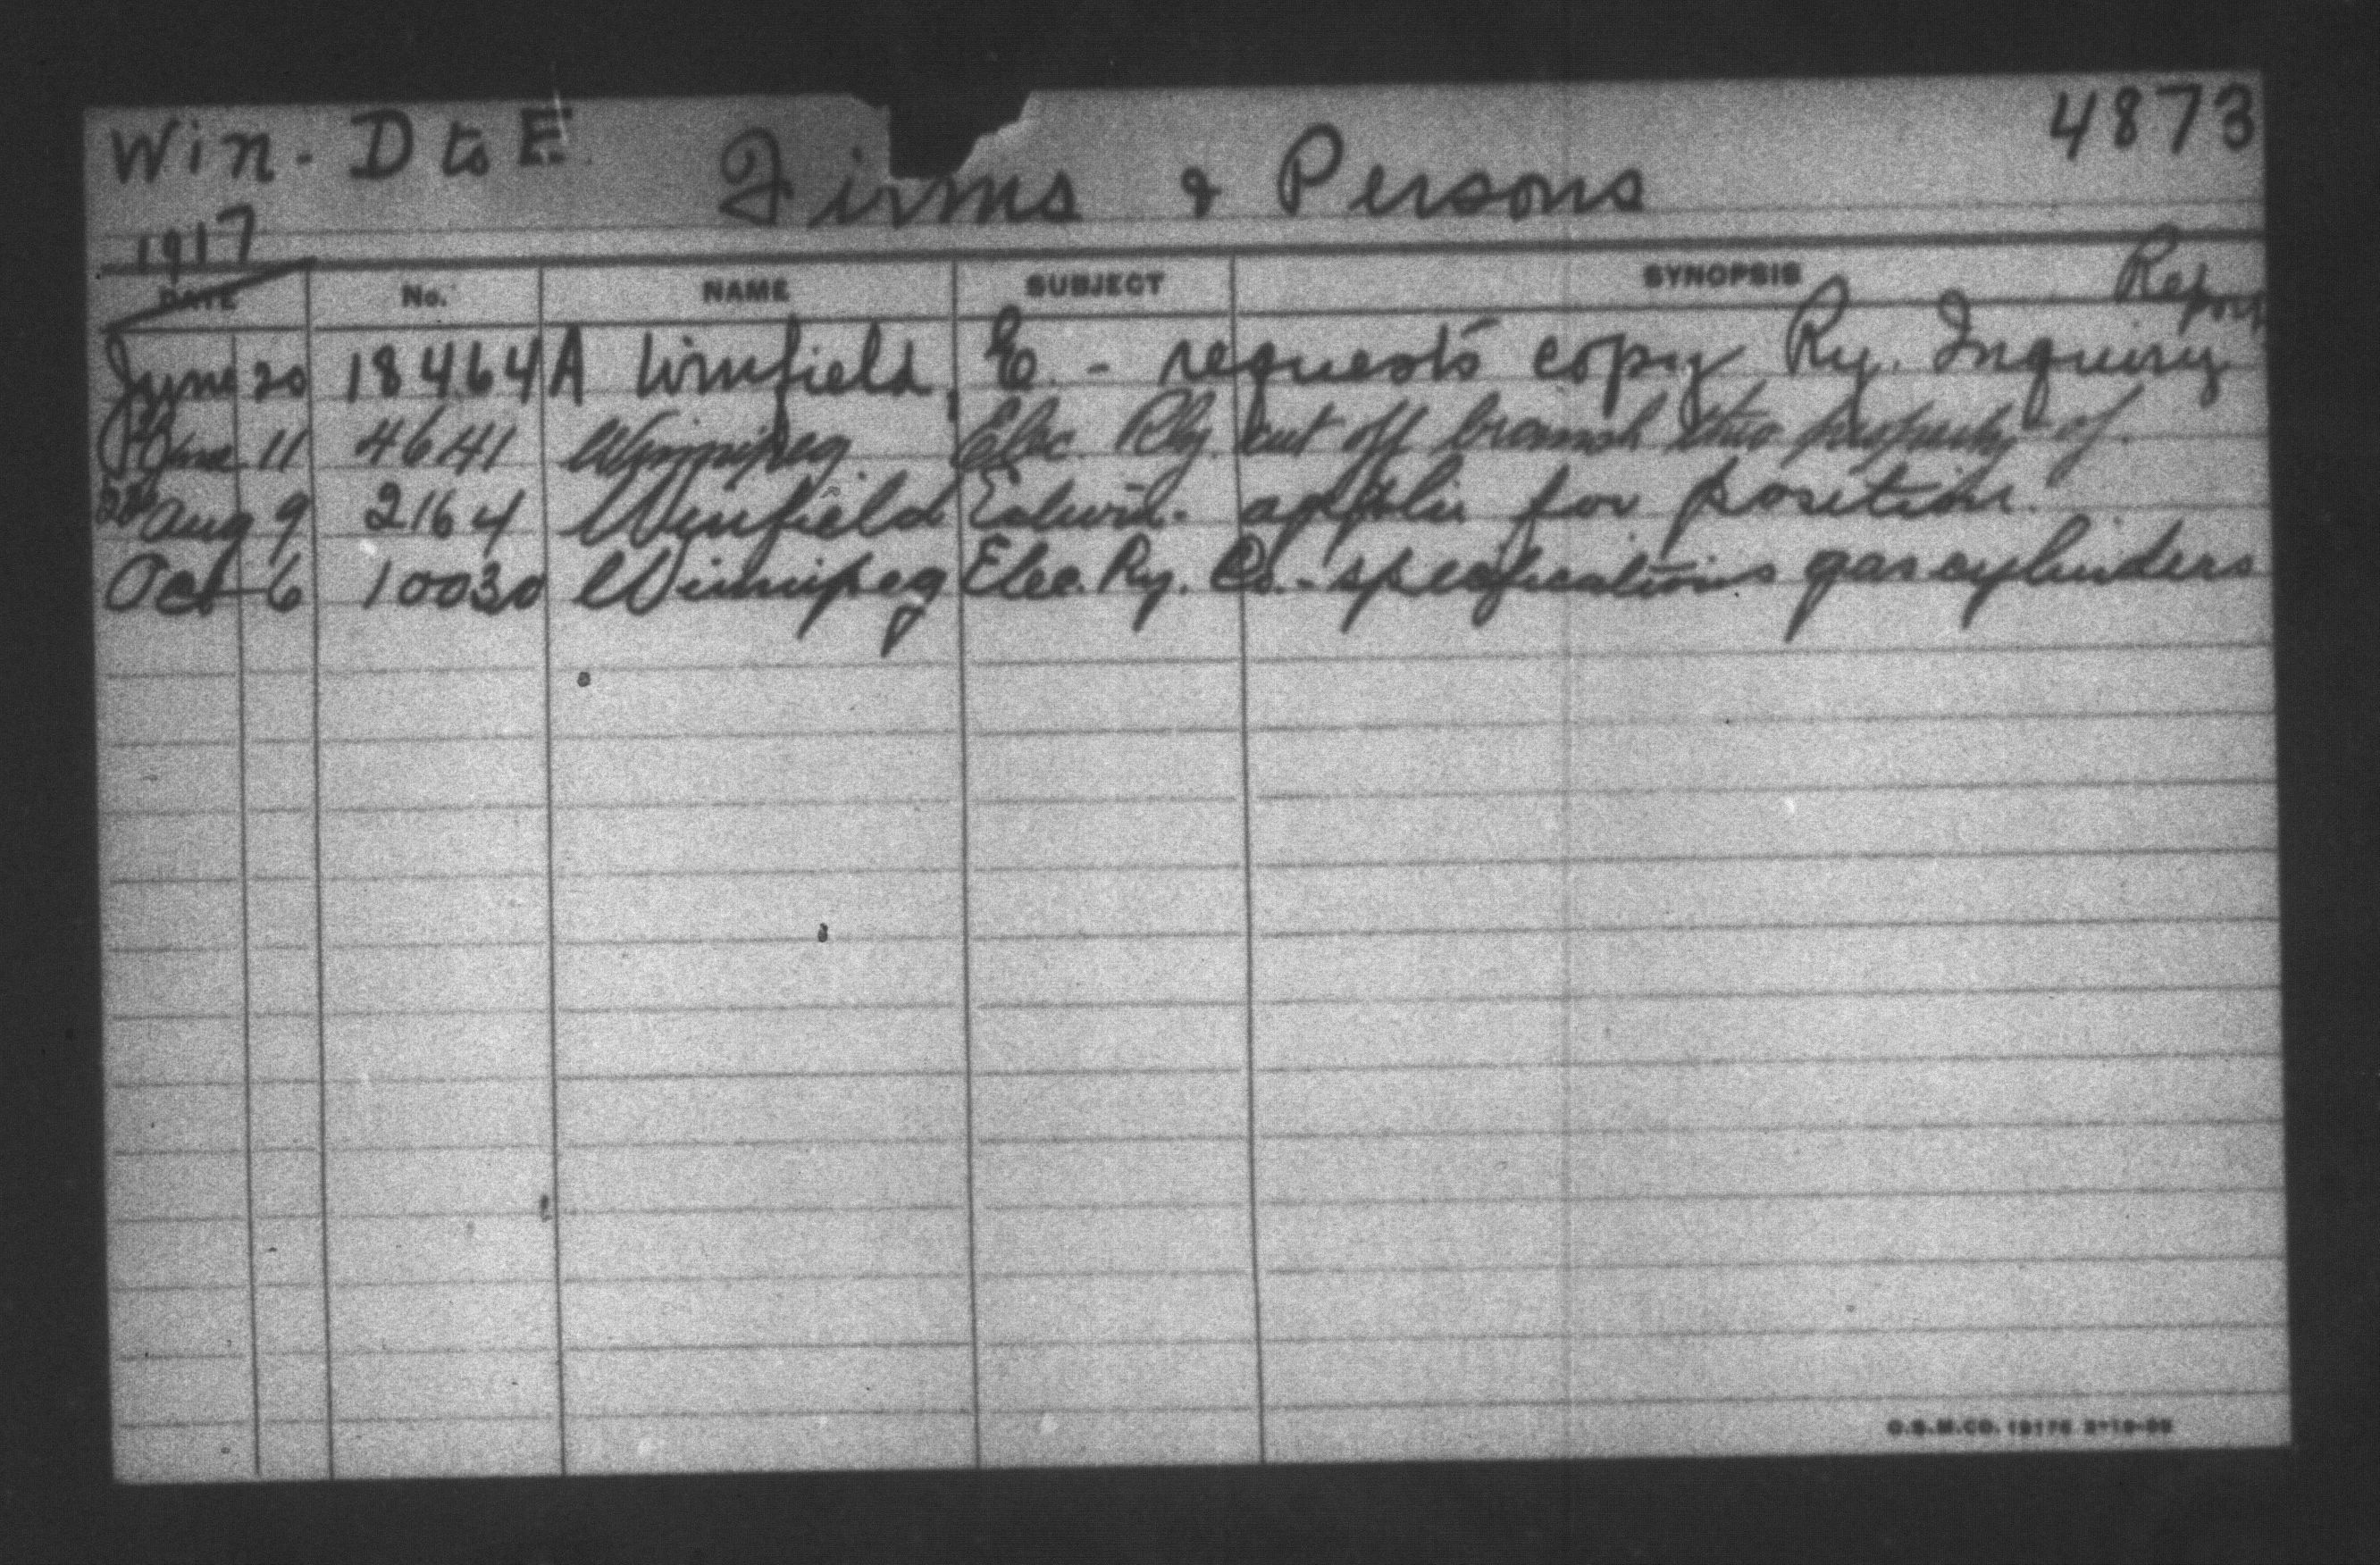 Win - D to E. Firms & Persons 4873
1917
DATE No. NAME SUBJECT SYNOPSIS Report
June 20 18464 A Winfield, E. - requests copy Ry. Inquiry
June 11 4641 Winnipeg Elec. Rly. cut off branch thro property of.
Aug 9 2164 Winfield Edwin - applie for position.
Oct 6 10030 Winnipeg Elec. Ry. Co. - specifications gas cylinders
O.S.M.CO. 19176